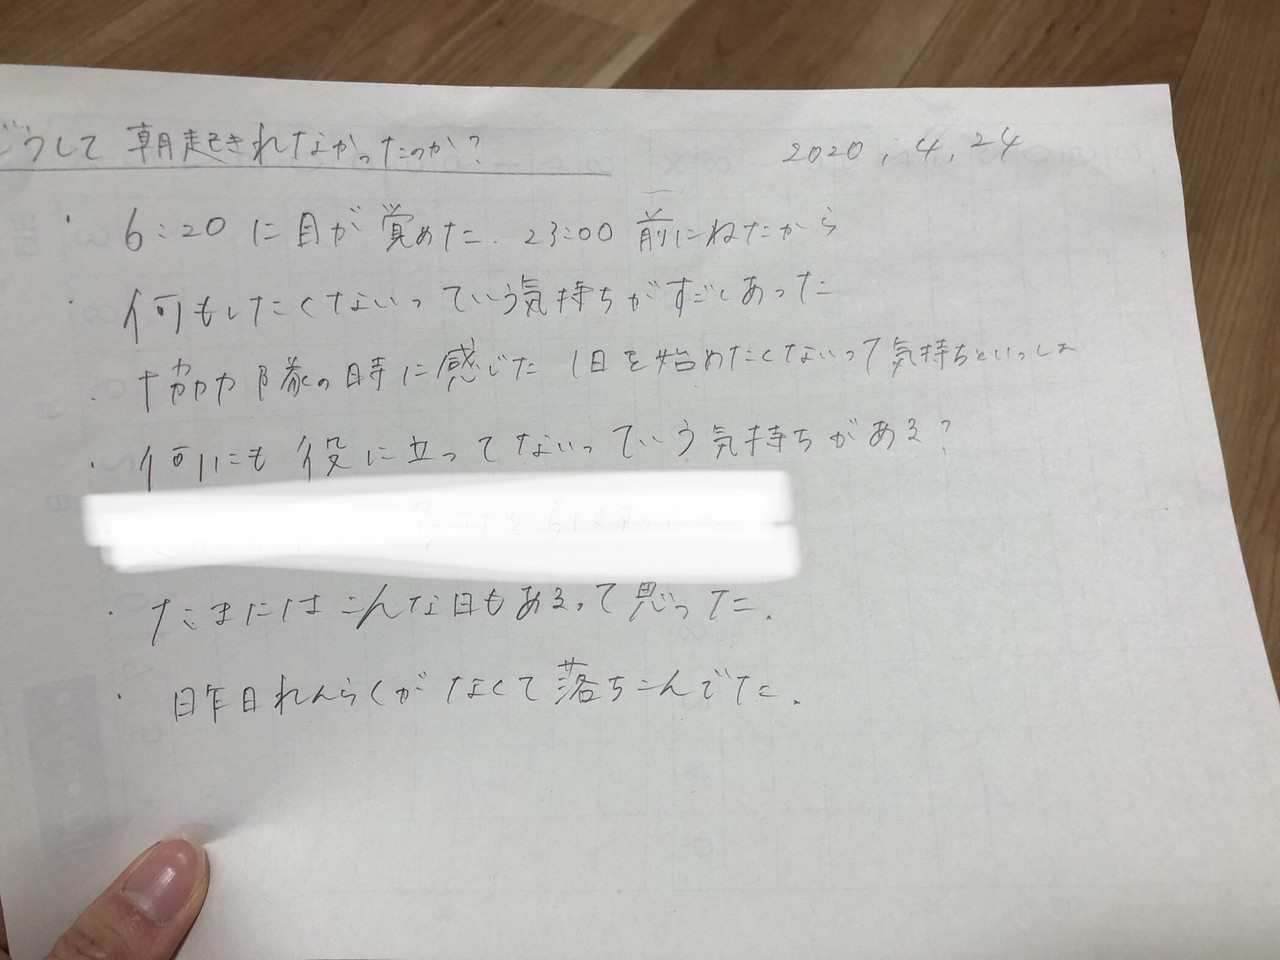 どうして朝起きれなかったのか?
2020.4.24
・ 6:20に目が覚めた. 23:00前にねたから
・ 何もしたくないっていう気持ちがすごしあった
・ 協力隊の時に感じた1日を始めたくないって気持ちといっしょ
・ 何にも役に立ってないっていう気持ちがある?
・ たまにはこんな日もあるって思った.
・ 昨日れんらくがなくて落ちこんでた.